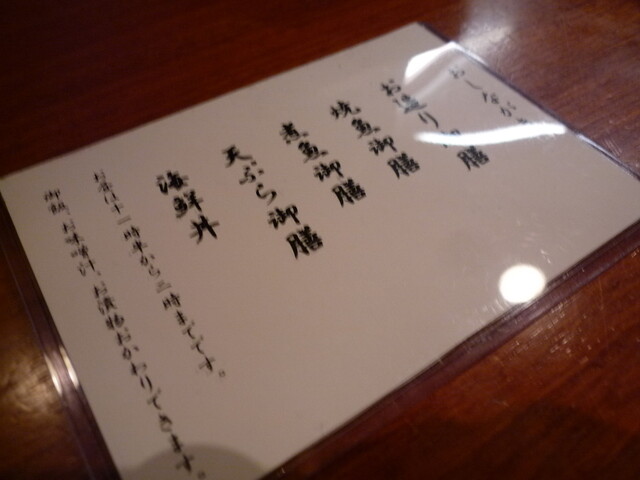 おしながき
お造り御膳
焼魚御膳
煮魚御膳
天ぷら御膳
海鮮丼
お昼は十一時半から二時までです。
御飯、お味噌汁、お漬物おかわりできます。